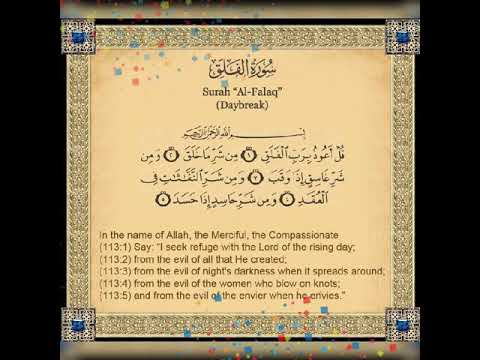 سُورَةُ الْفَلَقِ
Surah "Al-Falaq"
(Daybreak)
بِسْمِ اللَّهِ الرَّحْمَٰنِ الرَّحِيمِ
قُلْ أَعُوذُ بِرَبِّ الْفَلَقِ ١ مِن شَرِّ مَا خَلَقَ ٢ وَمِن
شَرِّ غَاسِقٍ إِذَا وَقَبَ ٣ وَمِن شَرِّ النَّفَّاثَاتِ فِي
الْعُقَدِ ٤ وَمِن شَرِّ حَاسِدٍ إِذَا حَسَدَ ٥
In the name of Allah, the Merciful, the Compassionate
(113:1) Say: "I seek refuge with the Lord of the rising day;
(113:2) from the evil of all that He created;
(113:3) from the evil of night's darkness when it spreads around;
(113:4) from the evil of the women who blow on knots;
(113:5) and from the evil of the envier when he envies."